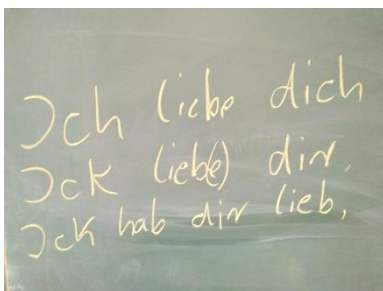 Ich liebe dich
Ick liebe) dir.
Ick hab dir lieb,